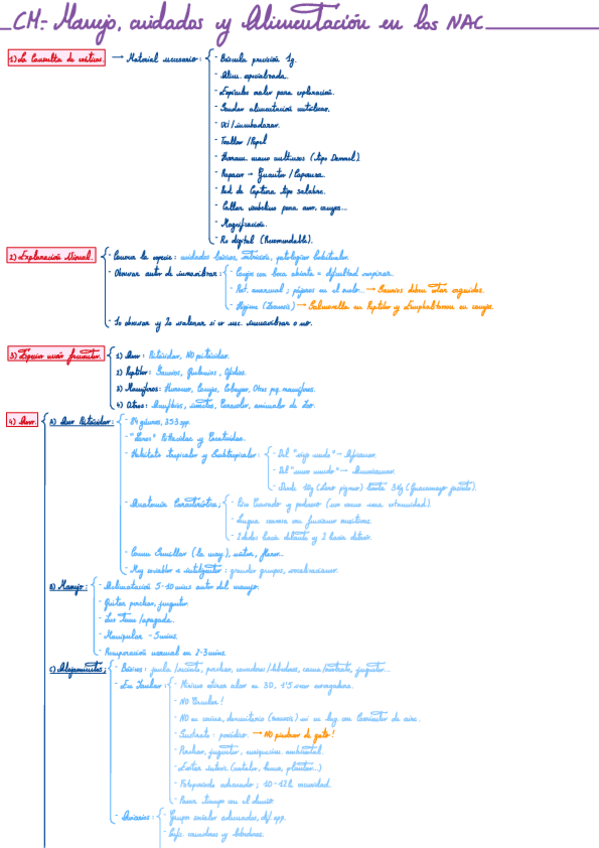 CM.- Manejo, cuidados y Alimentación en los NAC
1) La Consulta de exóticos. → Material necesario:
- Báscula precisión 1g.
- Alim. especializada.
- Espéculos maler para exploración.
- Sondas alimentación metálicas.
- UCI/incubadoras.
- Toallas/Papel
- (tipo Dremel)
- Guantes/Caperuza.
- Red de Captura tipo salabre.
- Collar isabelino para aves, conejos...
- Magnificación.
- Rx digital (Recomendable).
2) Exploración Visual.
- Conocer la especie: cuidados básicos, nutrición, patologías habituales.
- Observar antes de inmovilizar:
- Conejo con boca abierta = dificultad respirar.
- Rot. anormal; pájaros en el suelo. → Saurios deben estar erguidos.
- Higiene (Zoonosis) → Salmonella en Reptiles y Encephalitozoon en conejos.
- 1º observar y 2º valorar si es nec. inmovilizar o no.
3) Especies más frecuentes.
1) Aves: Psitácidas, NO psitácidas.
2) Reptiles: Saurios, Quelonios, Ofidios.
3) Mamíferos: Hurones, Conejos, Cobayas, Otros peq. mamíferos.
4) Otros: Anfibios, insectos, animales de Zoo.
4) Aves.
A) Aves Psitácidas:
- 84 géneros, 353 spp.
- "Loros" Psitácidos y Cacatúidos.
- Hábitats tropicales y Subtropicales:
- Del "viejo mundo" → Africanos.
- Del "nuevo mundo" → Americanos.
- Desde 10g (loro pigmeo) hasta 3kg (Guacamayo jacinto).
- Anatomía Característica;
- Pico Curvado y potente (uso como una extremidad).
- Lengua carnosa con funciones
- 2 dedos hacia delante y 2 hacia detrás.
- Comen Semillas (la may.), néctar, flores..
- Muy sociables e inteligentes: grandes grupos, vocalizaciones.
B) Manejo:
- Aclimatación 5-10 mins antes del manejo.
- Quitar perchas, juguetes.
- Luz Tenue/apagada.
- Manipular ~5mins.
- Recuperación normal en 2-3mins.
C) Alojamientos;
- Básicos: jaula/recinto, perchas, comederos/bebederos, cama/sustrato, juguetes...
- En Jaulas:
- Mínimo extender alas en 3D, 1'5 veces envergadura.
- NO Circular!
- NO en cocina, dormitorio (zoonosis) ni en hab con Corriente de aire.
- Sustrato: periódico. → NO piedras de gato!
- Perchas, juguetes, enriquecim. ambiental.
- Evitar tóxicos (metales, humo, plantas..)
- Fotoperiodo adecuado; 10-12h oscuridad.
- Pasar tiempo con el dueño
- Aviarios:
- Grupos sociales adecuados, dif spp.
- Sufic. comederos y bebederos.